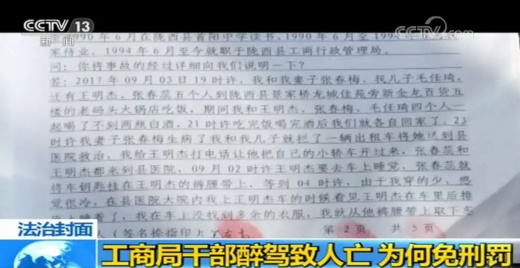 CCTV 13
新闻
央视网
cctv.com
在陇西县首阳中学读书,1990年6月至
家待业,1994年6月至今就职于陇西县工商行政管理局。
问:你将事故的经过详细向我们说明一下?
答:2017年09月03日19时许,我和我妻子张春梅,我儿子毛佳琦,
还有王明杰,张春蕊五个人到陇西县景家桥龙城佳苑旁新金龙百货五
楼的老码头火锅店吃饭,期间我和王明杰,张春梅,毛佳琦四个人一
起喝了不到两瓶白酒,21时许吃完饭喝完酒后我们就各自回家了,23
时许我妻子张春梅生病了我和我儿子就拦了一辆出租车将她送到县
医院救治,我给王明杰打电话让他把自己的小轿车开过来,张春蕊和
王明杰都来到县医院,09月02时许王明杰要去车上睡觉,张春蕊就
将车钥匙挂在王明杰的裤腰带上,等到04时许,由于我穿的少,感
觉很冷,在县医院大院内我上王明杰车的时候看见王明杰在车里后排
睡着了,我在车上没找到多余的衣服,我就从他裤腰带上取下车
(签名捺指印)
第 2 页 共 5 页
法治封面
工商局干部醉驾致人亡 为何免刑罚